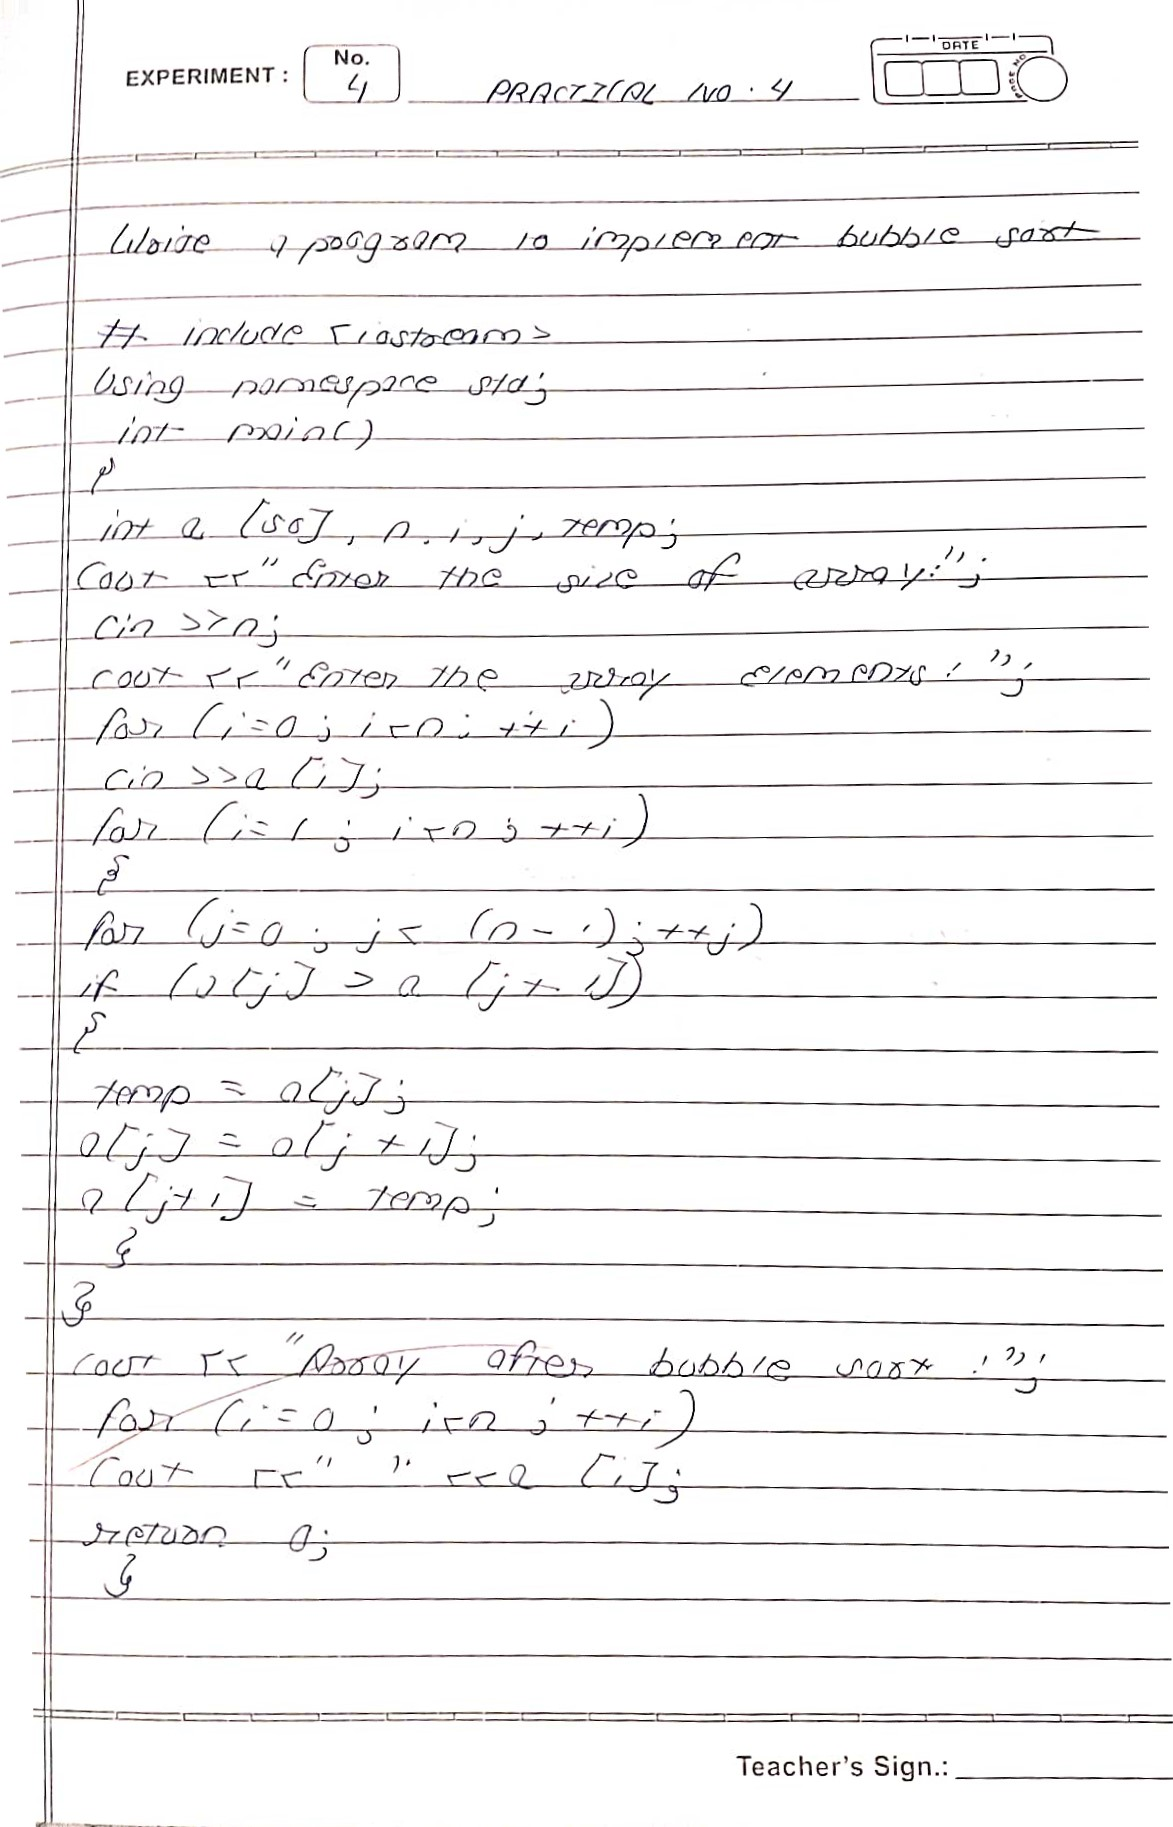 EXPERIMENT : No. 4 PRACTICAL NO. 4 DATE PAGE NO.
Write a program to implement bubble sort
# include <iostream>
Using namespace std;
int main()
{
int a [50], n, i, j, temp;
Cout <<"Enter the size of array:";
cin >>n;
cout <<"Enter the array elements:";
for (i=0; i<n; ++i)
cin >>a [i];
for (i=1; i<n; ++i)
{
for (j=0; j< (n-1); ++j)
if (a[j] > a [j+1])
{
temp = a[j];
a[j] = a[j+1];
a [j+1] = temp;
}
}
cout << "Array after bubble sort :";
for (i=0; i<n; ++i)
Cout <<" " <<a [i];
return 0;
}
Teacher's Sign.: